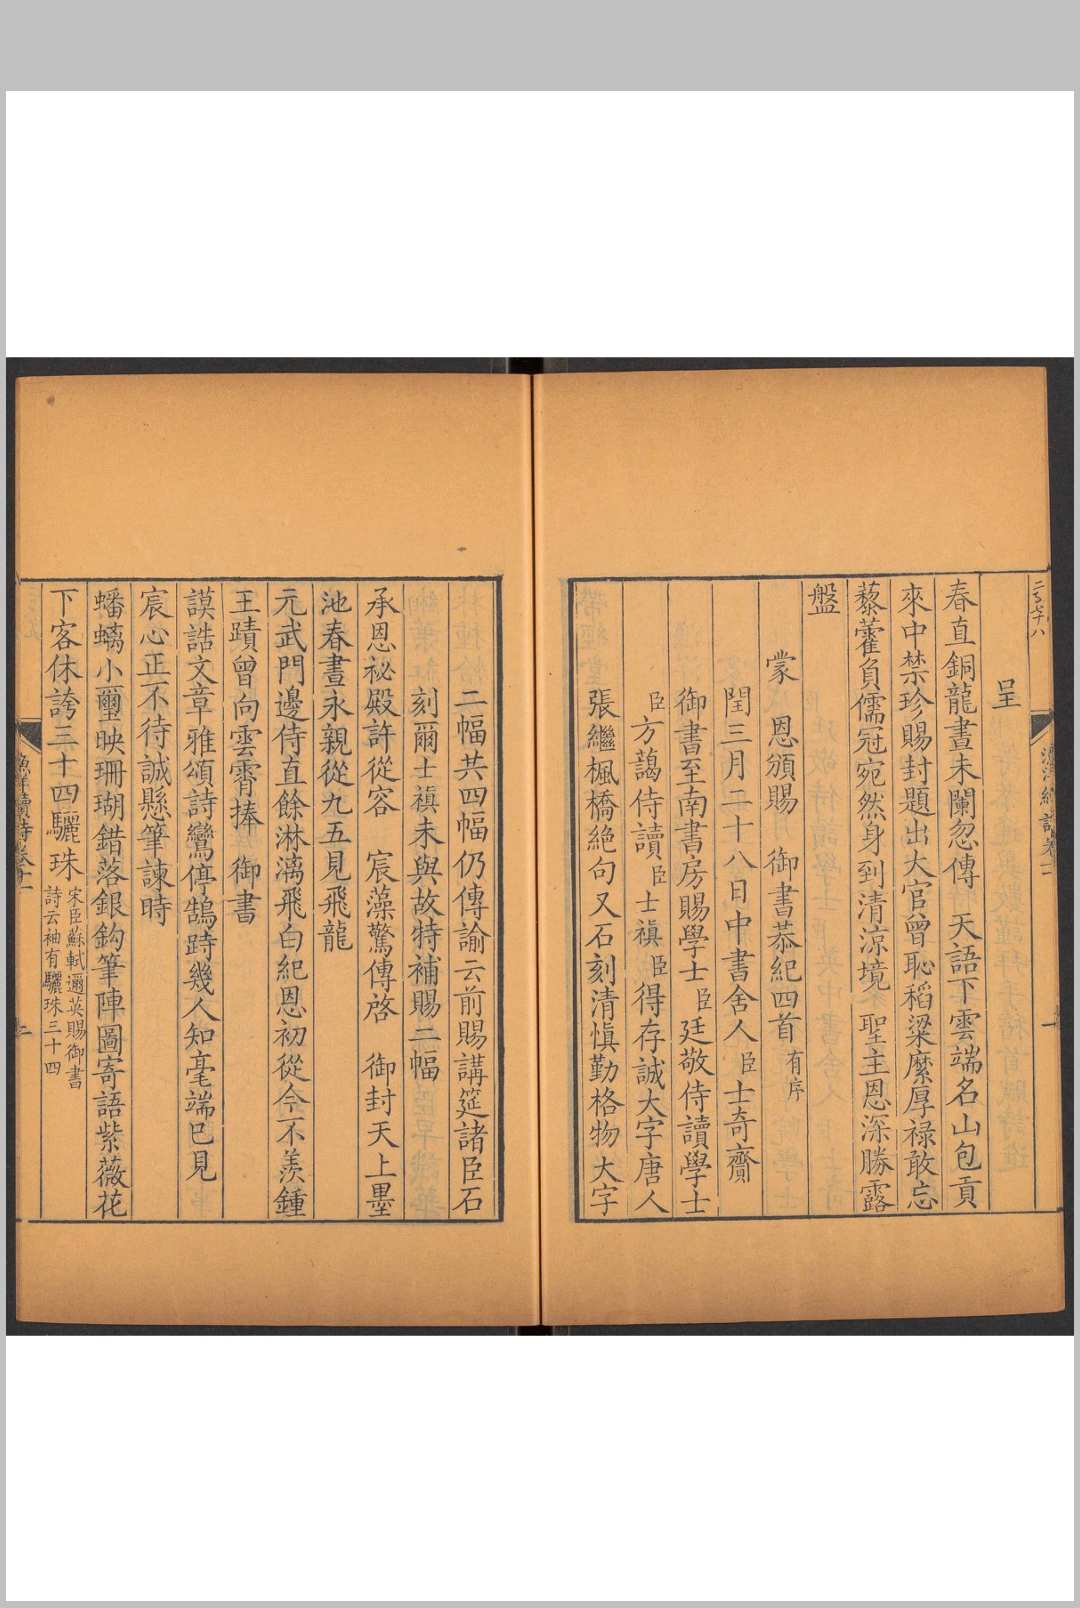 呈
春直銅龍晝未闌忽傳 天語下雲端名山包貢
來中禁珍賜封題出大官曾恥稻粱糜厚祿敢忘
藜藿負儒冠宛然身到清涼境 聖主恩深勝露
盤
蒙 恩頒賜 御書恭紀四首有序
閏三月二十八日中書舍人臣士奇齎
御書至南書房賜學士臣廷敬侍讀學士
臣方藹侍讀臣士禛臣得存誠大字唐人
張繼楓橋絕句又石刻清慎勤格物大字
二幅共四幅仍傳諭云前賜講筵諸臣石
刻爾士禛未與故特補賜二幅
承恩祕殿許從容 宸藻驚傳啓 御封天上墨
池春晝永親從九五見飛龍
元武門邊侍直餘淋漓飛白紀恩初從今不羨鍾
王蹟曾向雲霄捧 御書
謨誥文章雅頌詩鸞停鵠跱幾人知毫端已見
宸心正不待誠懸筆諫時
蟠螭小璽映珊瑚錯落銀鈎筆陣圖寄語紫薇花
下客休誇三十四驪珠宋臣蘇軾邇英賜御書
詩云袖有驪珠三十四